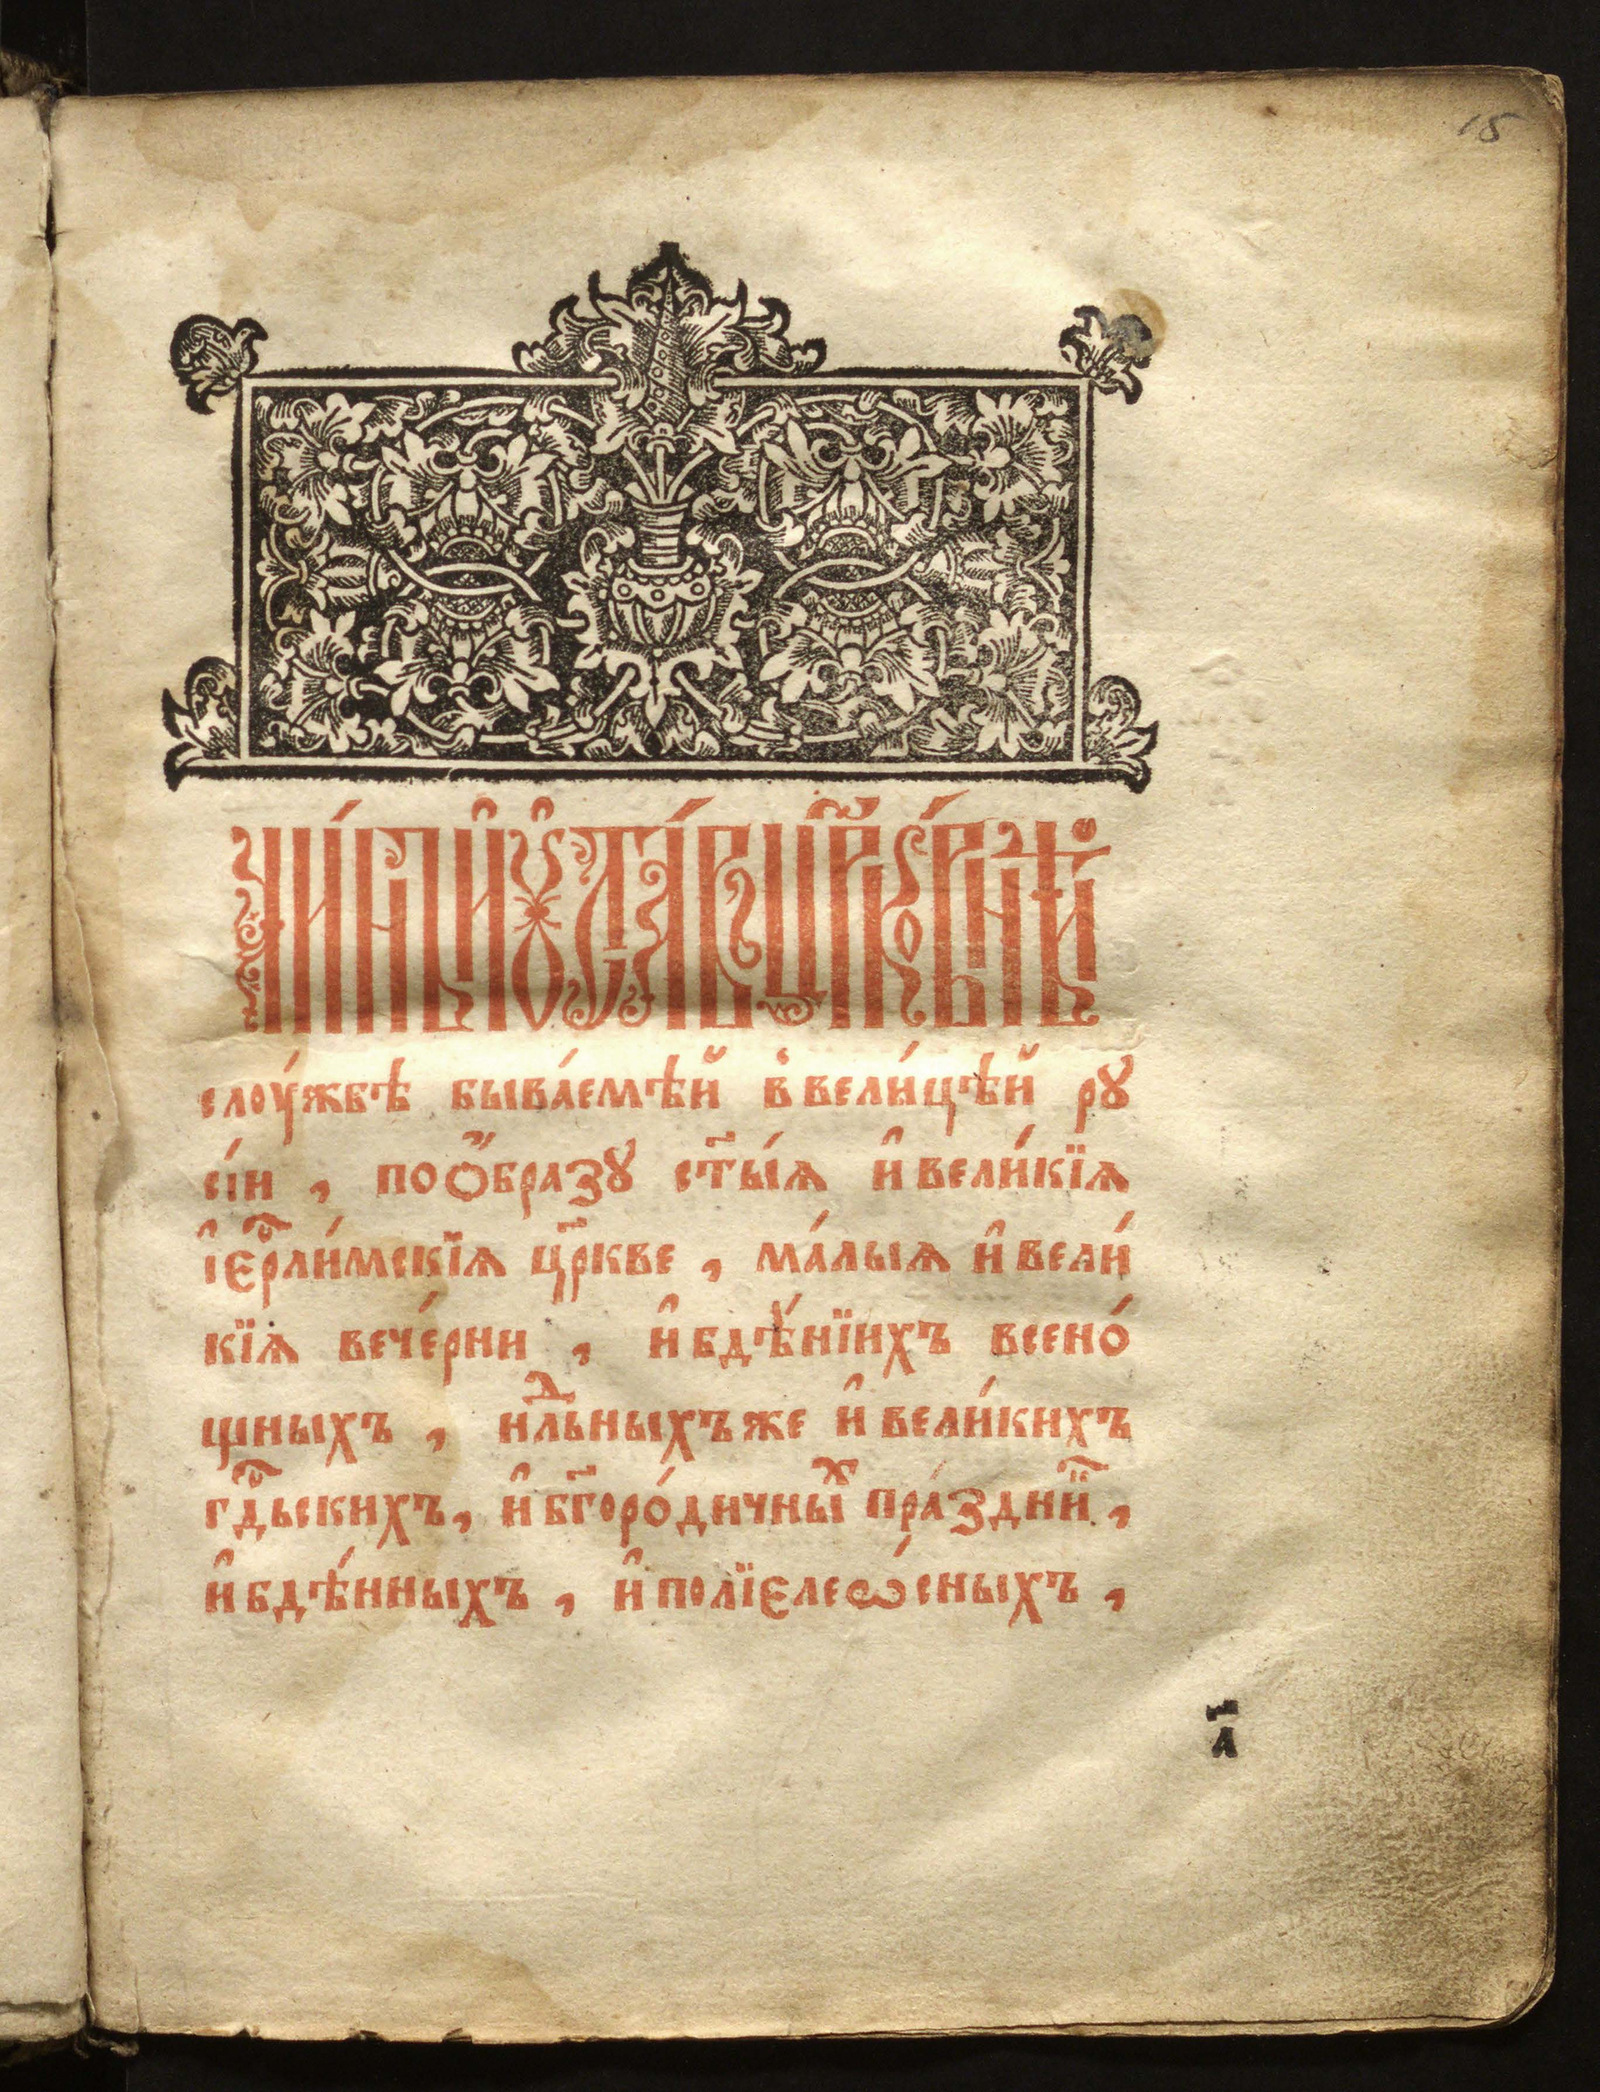 15
чи́нъ и҆ ѹ҆ста́въ цр҃ко́внѣй
слоу́жбѣ быва́емѣй в҆ вели́цѣй рꙋ
сі́и , по ѻ҆́бразꙋ ст҃ы́ѧ и҆ вели́кїѧ
і҆ерⷭ҇ли́мскїѧ цр҃кве , ма́лыѧ и҆ вели́
кїѧ вече́рни , и҆ бдѣ́нїихъ всено́
щныхъ , нⷣльныхъ же и҆ вели́кихъ
гдⷭ҇ьскихъ, и҆ бг҃оро́дичныⷯ пра́здниⷦ҇ ,
и҆ бдѣ́нныхъ , и҆ полїєлеѡ́сныхъ ,
а҃